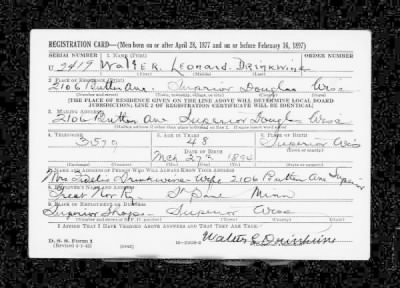 REGISTRATION CARD—(Men born on or after April 28, 1877 and on or before February 16, 1897)
SERIAL NUMBER 1. NAME (Print) ORDER NUMBER
U 2419 Walter Leonard Drinkwine
(First) (Middle) (Last)
2. PLACE OF RESIDENCE (Print)
2106 Butler Ave. Superior Douglas Wisc
(Number and street) (Town, township, village, or city) (County) (State)
[THE PLACE OF RESIDENCE GIVEN ON THE LINE ABOVE WILL DETERMINE LOCAL BOARD
JURISDICTION; LINE 2 OF REGISTRATION CERTIFICATE WILL BE IDENTICAL]
3. MAILING ADDRESS
2106 Butler Ave Superior Douglas Wisc
4. TELEPHONE 5. AGE IN YEARS 6. PLACE OF BIRTH
3579 48 Superior
DATE OF BIRTH (Town or county)
Mch 27th 1894 Wis
(Exchange) (Number) (Mo.) (Day) (Yr.) (State or country)
7. NAME AND ADDRESS OF PERSON WHO WILL ALWAYS KNOW YOUR ADDRESS
Mrs Drinkwine Wife 2106 Butler Ave Superior
8. EMPLOYER'S NAME AND ADDRESS
Great Nor Ry St Paul Minn
9. PLACE OF EMPLOYMENT OR BUSINESS
Superior Shops Superior Wisc
(Number and street or R. F. D. number) (Town) (County) (State)
I AFFIRM THAT I HAVE VERIFIED ABOVE ANSWERS AND THAT THEY ARE TRUE.
D. S. S. Form 1
(Revised 4-1-42)
Walter L Drinkwine